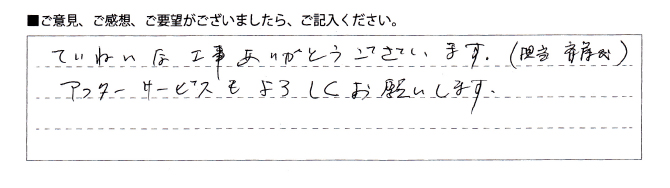 ■ご意見、ご感想、ご要望がございましたら、ご記入ください。
ていねいな工事ありがとうございます。(担当
アフターサービスもよろしくお願いします。